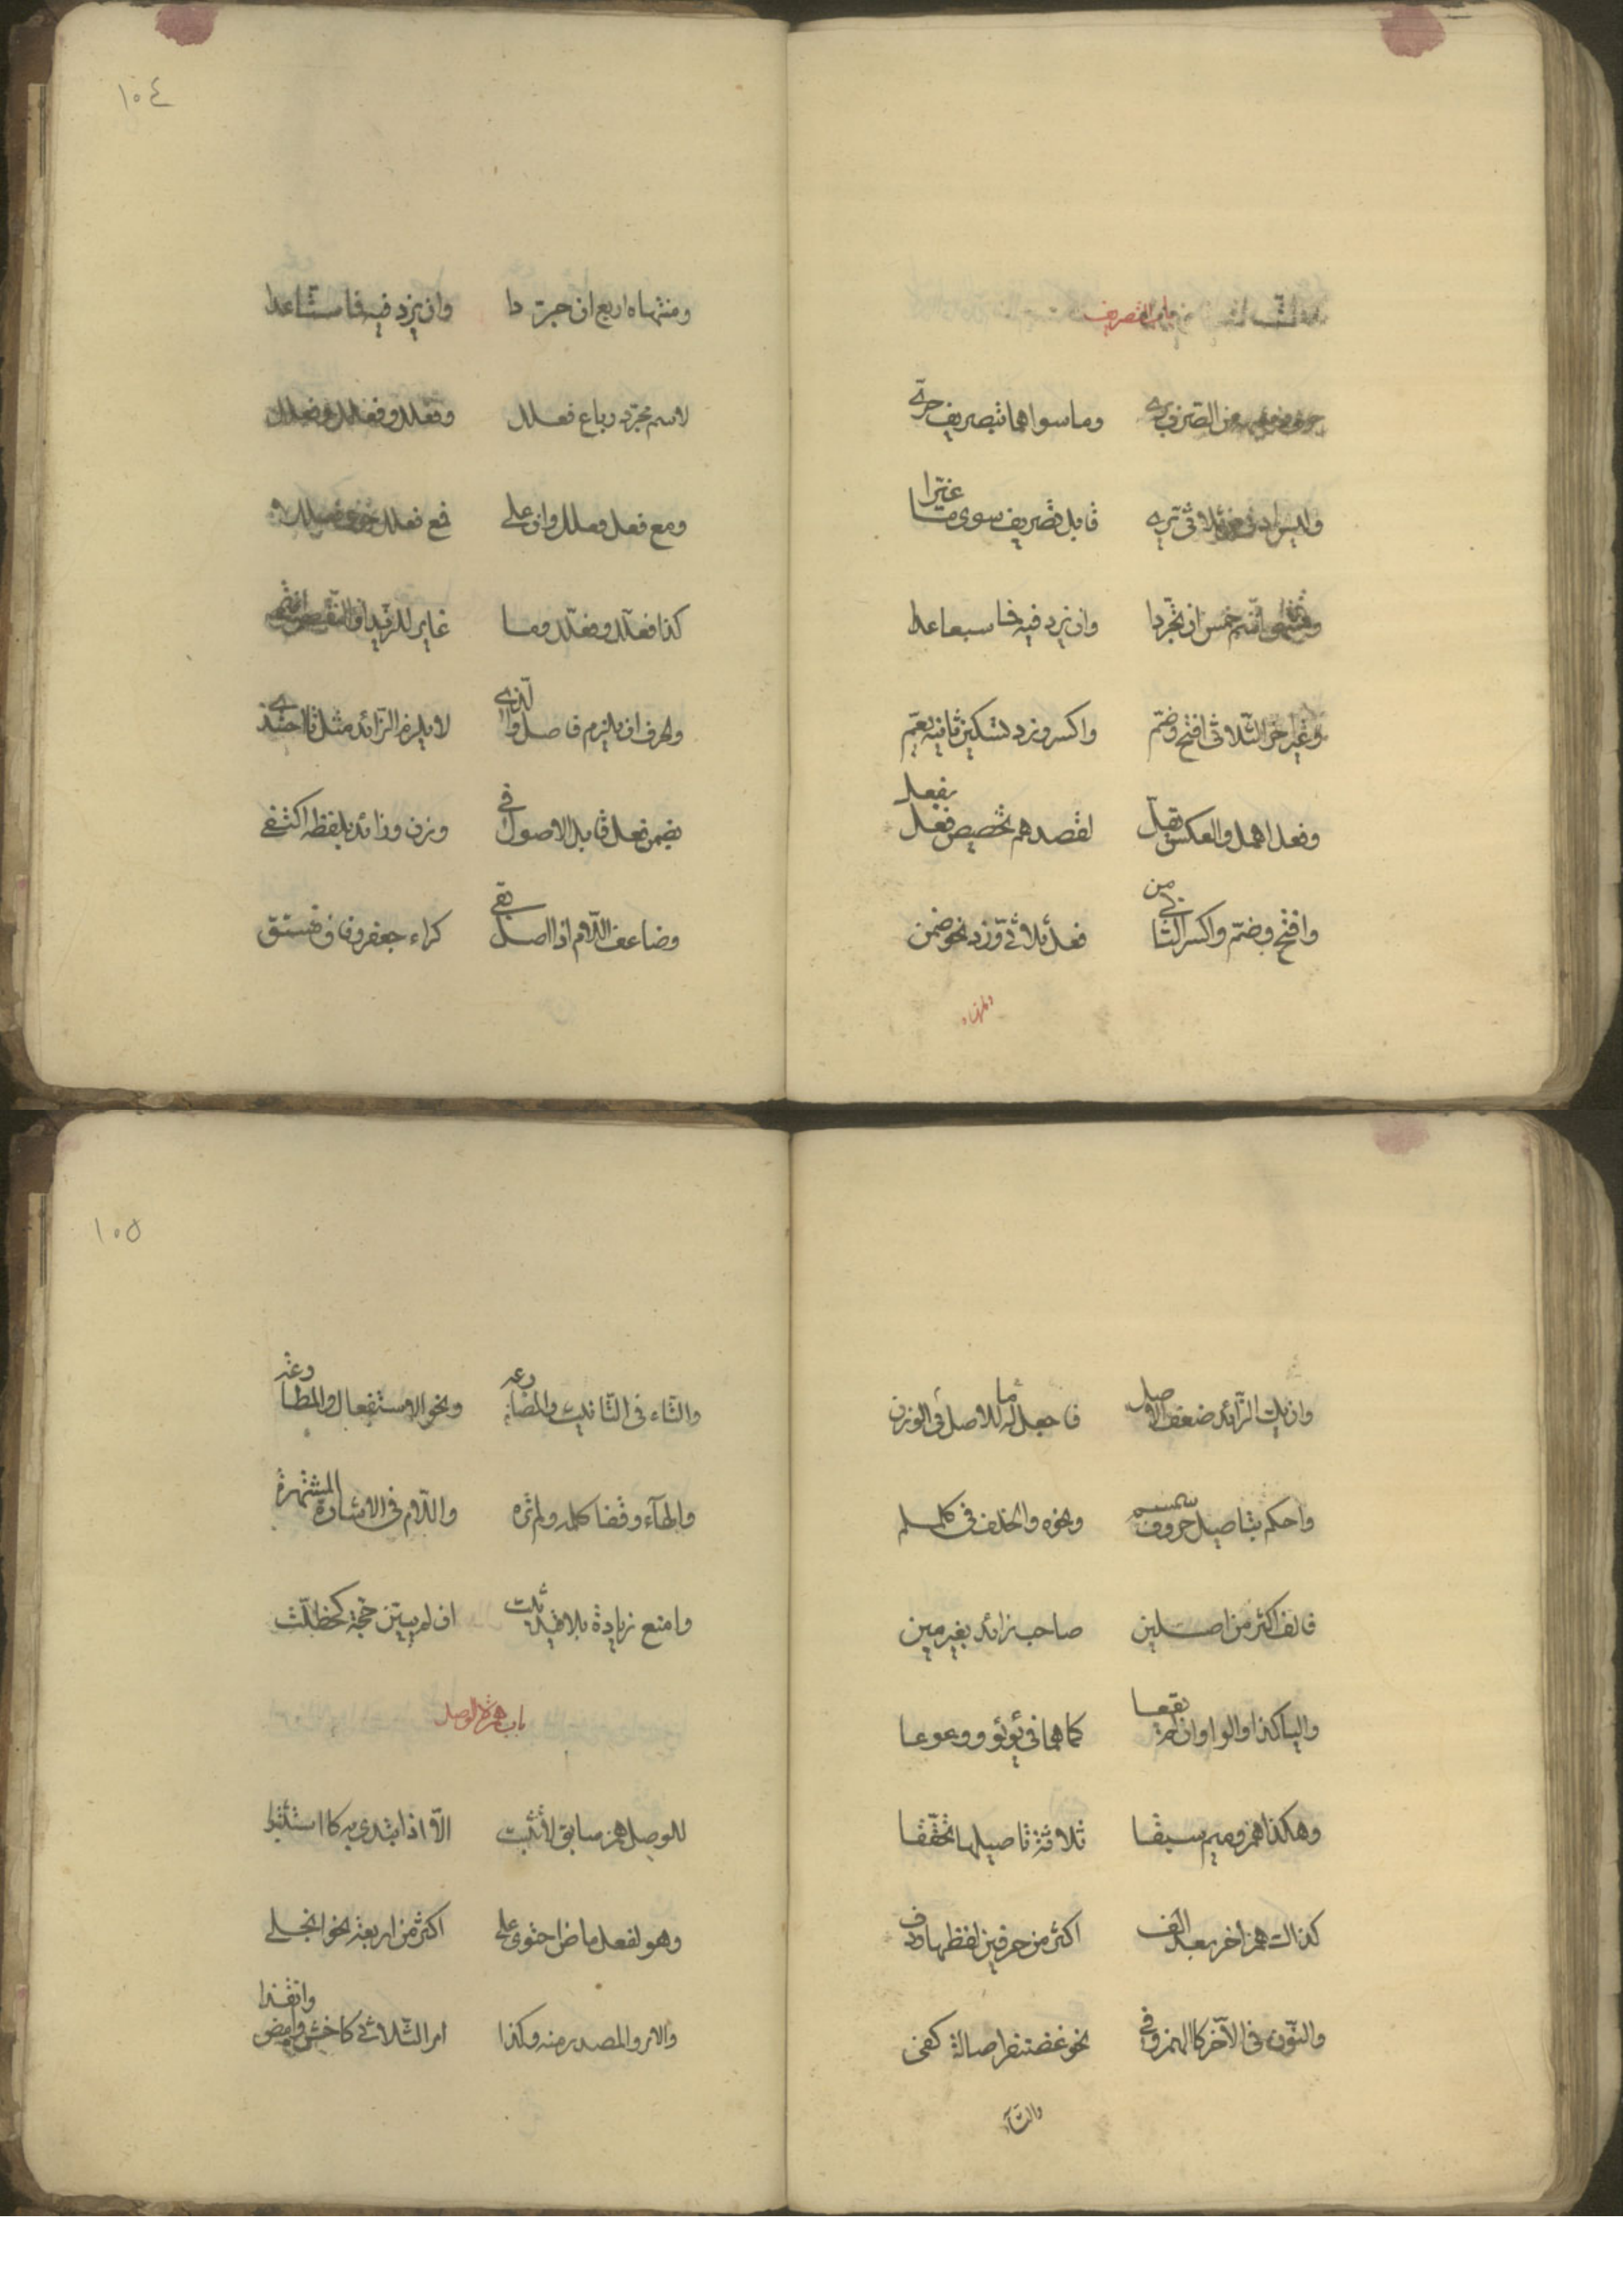 باب التصريف
حرف وشبهه من الصرف بري وما سواهما بتصريف حري
وليس ادنى من ثلاثي يرى قابل تصريف سوى ما غيرا
ومنتهى اسم خمس ان تجردا وان يزد فيه فما سبعا عدا
وغير اخر الثلاثي افتح وضم واكسر وزد تسكين ثانيه تعم
وفعل اهمل والعكس يقل لقصدهم تخصيص فعل بفعل
وافتح وضم واكسر الثاني من فعل ثلاثي وزد نحو ضمن
ومنتهاه
١٠٤
ومنتهاه اربع ان جردا وان يزد فيه فما ستا عدا
لاسم مجرد رباع فعلل وفعلل وفعلل وفعلل
ومع فعل فعلل وان علا فمع فعلل حوى فعللا
كذا فعلل وفعلل وما غاير للزيد او النقص انتمى
والحرف ان يلزم فاصل والذي لا يلزم الزائد مثل تا احتذي
بضمن فعل قابل الاصول في وزن وزائد بلفظه اكتفي
وضاعف اللام اذا اصل بقي كراء جعفر وقاف فستق
وان يك الزائد ضعف اصل فاجعل له في الوزن ما للاصل
واحكم بتاصيل حروف سمسم ونحوه والخلف في كلملم
فالف اكثر من اصلين صاحب زائد بغير مين
واليا كذا والواو ان لم يقعا كما هما في يؤيؤ ووعوعا
وهكذا همز وميم سبقا ثلاثة تاصيلها تحققا
كذاك همز اخر بعد الف اكثر من حرفين لفظها ردف
والنون في الآخر كالهمز وفي نحو غضنفر اصالة كفي
والتآء
١٠٥
والتاء في التانيث والمضارعه ونحو الاستفعال والمطاوعه
والهآء وقفا كلمه ولم تره واللام في الاشارة المشتهرة
وامنع زيادة بلا قيد ثبت ان لم يبين حجة كحظلت
باب همزة الوصل
للوصل همز سابق لا يثبت الا اذا ابتدي به كاستثبتوا
وهو لفعل ماض احتوى على اكثر من اربعة نحو انجلى
والامر والمصدر منه وكذا امر الثلاثي كاخش وامض وانفذا